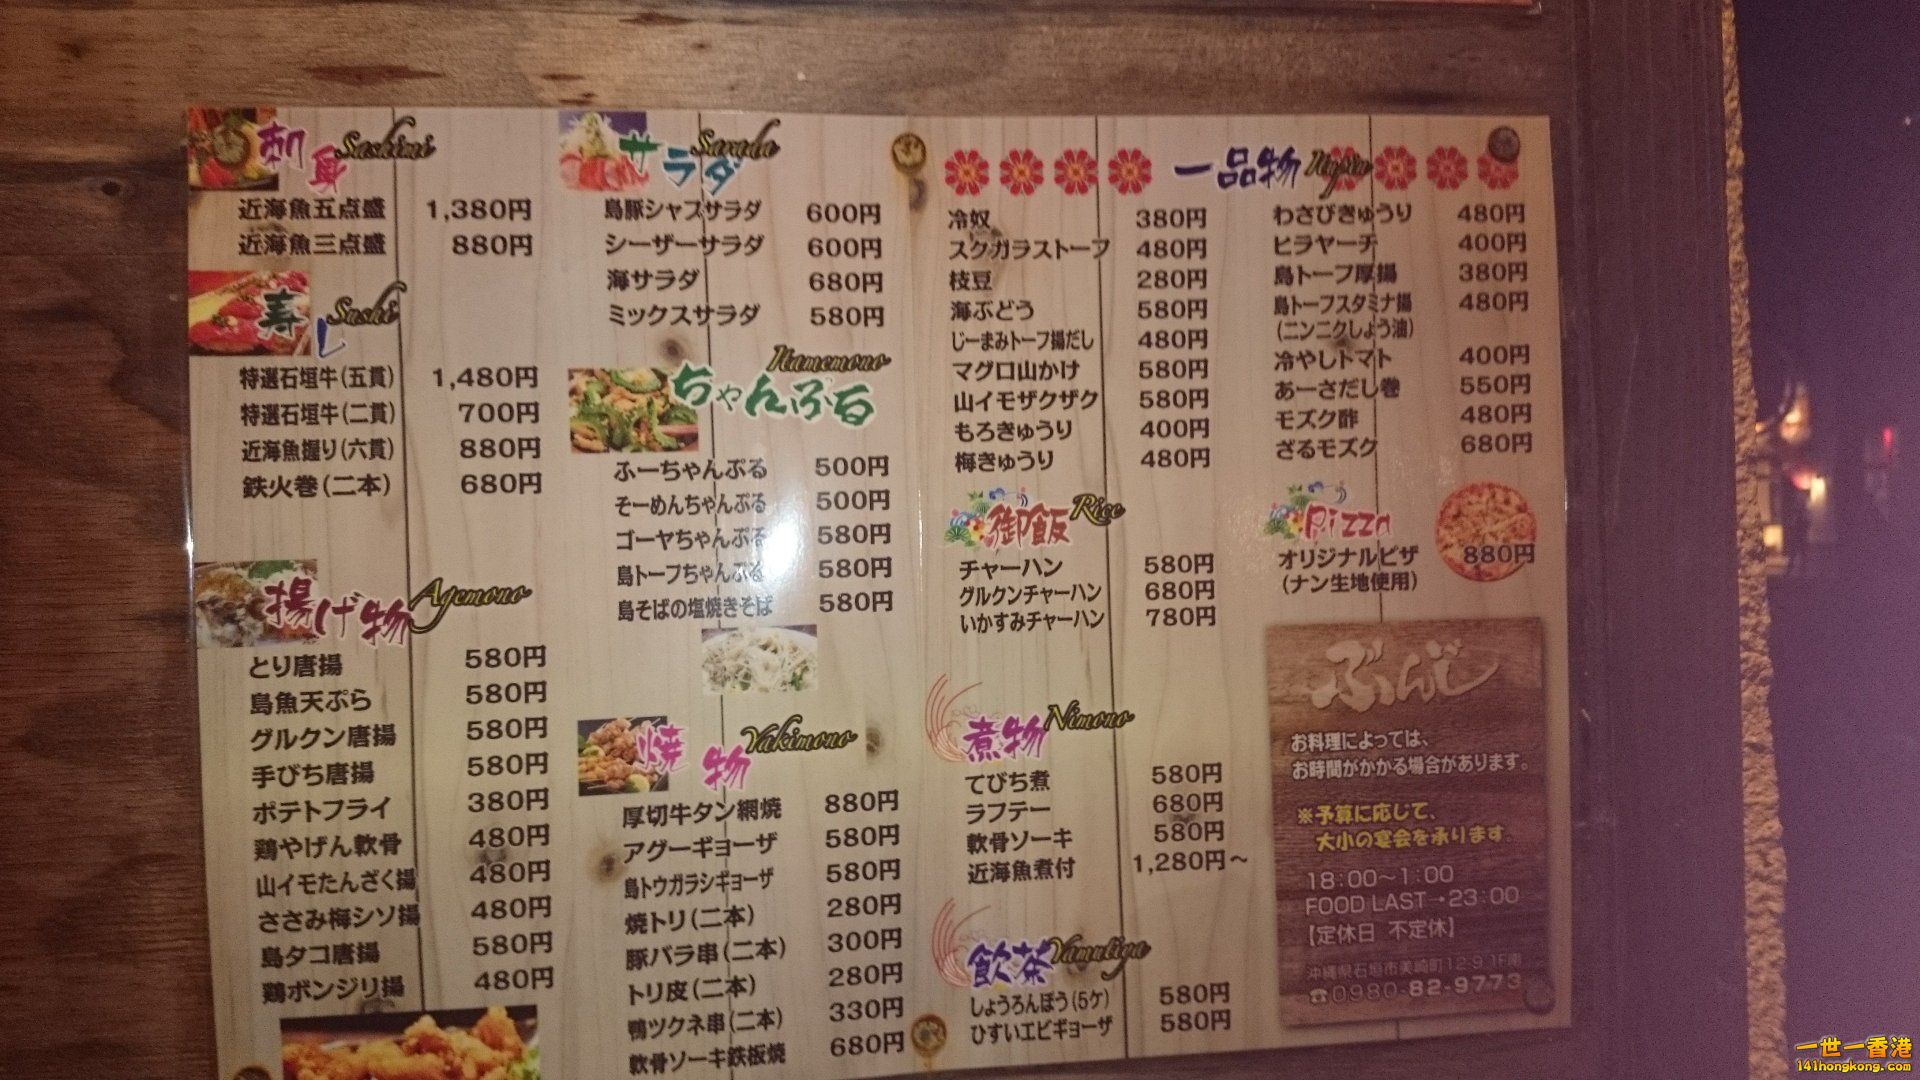 刺身 Sashimi
近海魚五点盛 1,380円
近海魚三点盛 880円
寿し Sushi
特選石垣牛(五貫) 1,480円
特選石垣牛(二貫) 700円
近海魚握り(六貫) 880円
鉄火巻(二本) 680円
揚げ物 Agemono
とり唐揚 580円
島魚天ぷら 580円
グルクン唐揚 580円
手びち唐揚 580円
ポテトフライ 380円
鶏やげん軟骨 480円
山イモたんざく揚 480円
ささみ梅シソ揚 480円
島タコ唐揚 580円
鶏ボンジリ揚 480円
サラダ Sarada
島豚シャブサラダ 600円
シーザーサラダ 600円
海サラダ 680円
ミックスサラダ 580円
ちゃんぷる Itamemono
ふーちゃんぷる 500円
そーめんちゃんぷる 500円
ゴーヤちゃんぷる 580円
島トーフちゃんぷる 580円
島そばの塩焼きそば 580円
焼物 Yakimono
厚切牛タン網焼 880円
アグーギョーザ 580円
島トウガラシギョーザ 580円
焼トリ(二本) 280円
豚バラ串(二本) 300円
トリ皮(二本) 280円
鴨ツクネ串(二本) 330円
軟骨ソーキ鉄板焼 680円
一品物 Ippin
冷奴 380円
スクガラストーフ 480円
枝豆 280円
海ぶどう 580円
じーまみトーフ揚だし 480円
マグロ山かけ 580円
山イモザクザク 580円
もろきゅうり 400円
梅きゅうり 480円
わさびきゅうり 480円
ヒラヤーチ 400円
島トーフ厚揚 380円
島トーフスタミナ揚 480円
(ニンニクしょう油)
冷やしトマト 400円
あーさだし巻 550円
モズク酢 480円
ざるモズク 680円
御飯 Rice
チャーハン 580円
グルクンチャーハン 680円
いかすみチャーハン 780円
Pizza
オリジナルピザ 880円
(ナン生地使用)
煮物 Nimono
てびち煮 580円
ラフテー 680円
軟骨ソーキ 580円
近海魚煮付 1,280円～
飲茶 Yamutiya
しょうろんぽう(5ケ) 580円
ひすいエビギョーザ 580円
ぶんじ
お料理によっては、
お時間がかかる場合があります。
※予算に応じて、
大小の宴会を承ります。
18:00～1:00
FOOD LAST→23:00
【定休日 不定休】
沖縄県石垣市美崎町12-9 1F南
☎0980-82-9773
一世一香港
141hongkong.com